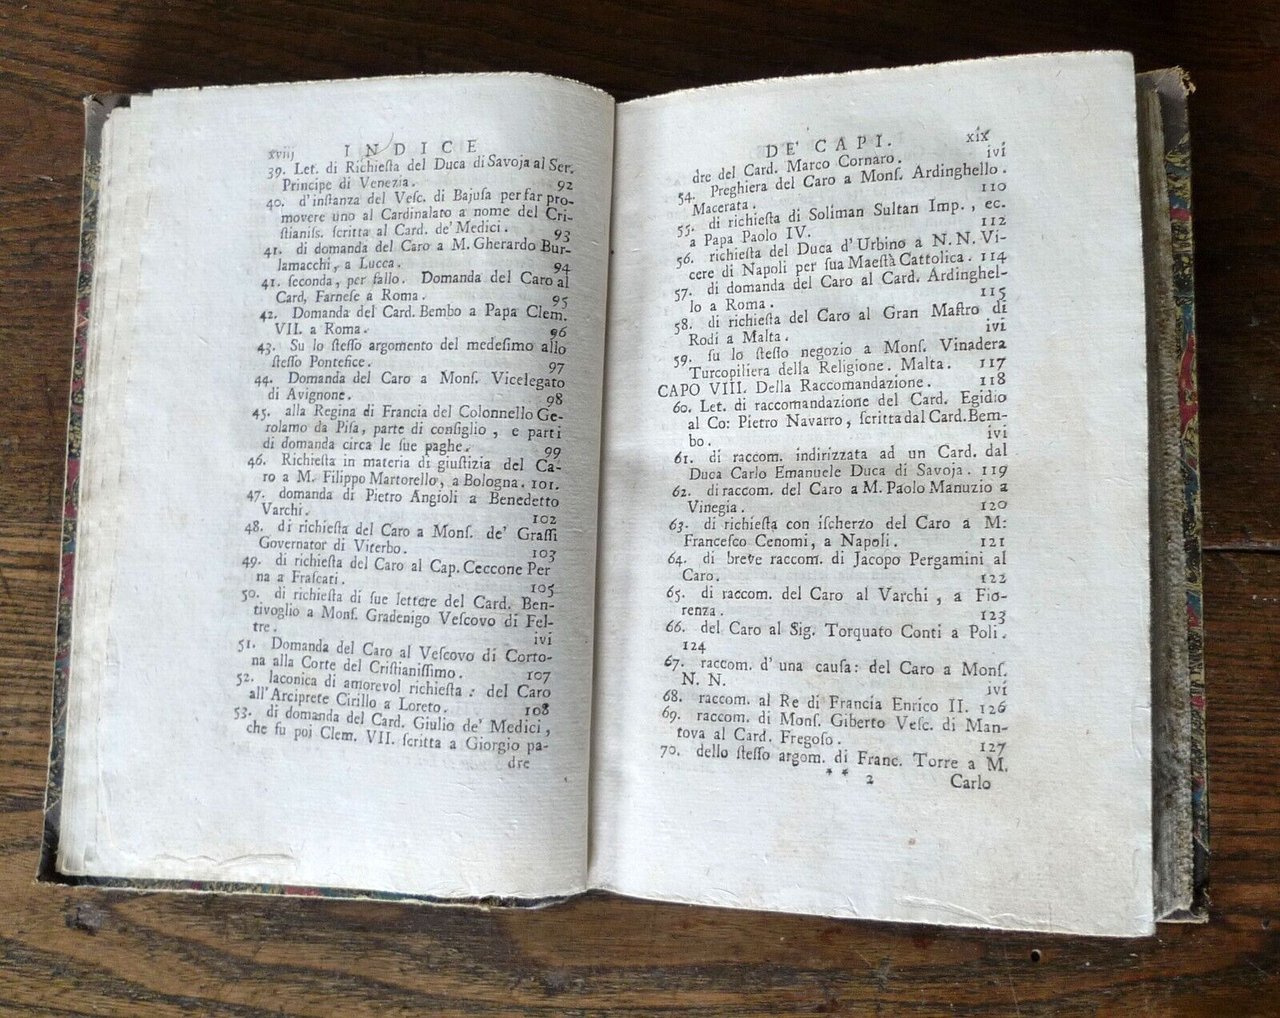 xviij INDICE
39. Let. di Richieſta del Duca di Savoja al Ser.
Principe di Venezia. 92
40. d'inſtanza del Veſc. di Bajuſa per far pro-
movere uno al Cardinalato a nome del Cri-
ſtianiſs. ſcritta al Card. de' Medici. 93
41. di domanda del Caro a M. Gherardo Bur-
lamacchi, a Lucca. 94
41. ſeconda, per fallo. Domanda del Caro al
Card, Farneſe a Roma. 95
42. Domanda del Card. Bembo a Papa Clem.
VII. a Roma. 96
43. Su lo ſteſſo argomento del medeſimo allo
ſteſſo Pontefice. 97
44. Domanda del Caro a Monſ. Vicelegato
di Avignone. 98
45. alla Regina di Francia del Colonnello Ge-
rolamo da Piſa, parte di conſiglio, e parti
di domanda circa le ſue paghe. 99
46. Richieſta in materia di giuſtizia del Ca-
ro a M. Filippo Martorello, a Bologna. 101.
47. domanda di Pietro Angioli a Benedetto
Varchi. 102
48. di richieſta del Caro a Monſ. de' Graſſi
Governator di Viterbo. 103
49. di richieſta del Caro al Cap. Ceccone Per
na a Fraſcati. 105
50. di richieſta di ſue lettere del Card. Ben-
tivoglio a Monſ. Gradenigo Veſcovo di Fel-
tre. ivi
51. Domanda del Caro al Veſcovo di Corto-
na alla Corte del Criſtianiſſimo. 107
52. laconica di amorevol richieſta: del Caro
all'Arciprete Cirillo a Loreto. 108
53. di domanda del Card. Giulio de' Medici,
che fu poi Clem. VII. ſcritta a Giorgio pa-
dre
DE' CAPI. xix
dre del Card. Marco Cornaro. ivi
54. Preghiera del Caro a Monſ. Ardinghello.
Macerata. 110
55. di richieſta di Soliman Sultan Imp., ec.
a Papa Paolo IV. 112
56. richieſta del Duca d'Urbino a N. N. Vi-
cere di Napoli per ſua Maeſtà Cattolica. 114
57. di domanda del Caro al Card. Ardinghel-
lo a Roma. 115
58. di richieſta del Caro al Gran Maſtro di
Rodi a Malta. ivi
59. ſu lo ſteſſo negozio a Monſ. Vinadera
Turcopiliera della Religione. Malta. 117
CAPO VIII. Della Raccomandazione. 118
60. Let. di raccomandazione del Card. Egidio
al Co: Pietro Navarro, ſcritta dal Card. Bem-
bo. ivi
61. di raccom. indirizzata ad un Card. dal
Duca Carlo Emanuele Duca di Savoja. 119
62. di raccom. del Caro a M. Paolo Manuzio a
Vinegia. 120
63. di richieſta con iſcherzo del Caro a M:
Franceſco Cenomi, a Napoli. 121
64. di breve raccom. di Jacopo Pergamini al
Caro. 122
65. di raccom. del Caro al Varchi, a Fio-
renza. 123
66. del Caro al Sig. Torquato Conti a Poli.
124
67. raccom. d'una cauſa: del Caro a Monſ.
N. N. ivi
68. raccom. al Re di Francia Enrico II. 126
69. raccom. di Monſ. Giberto Veſc. di Man-
tova al Card. Fregoſo. 127
70. dello ſteſſo argom. di Franc. Torre a M.
* * 2 Carlo